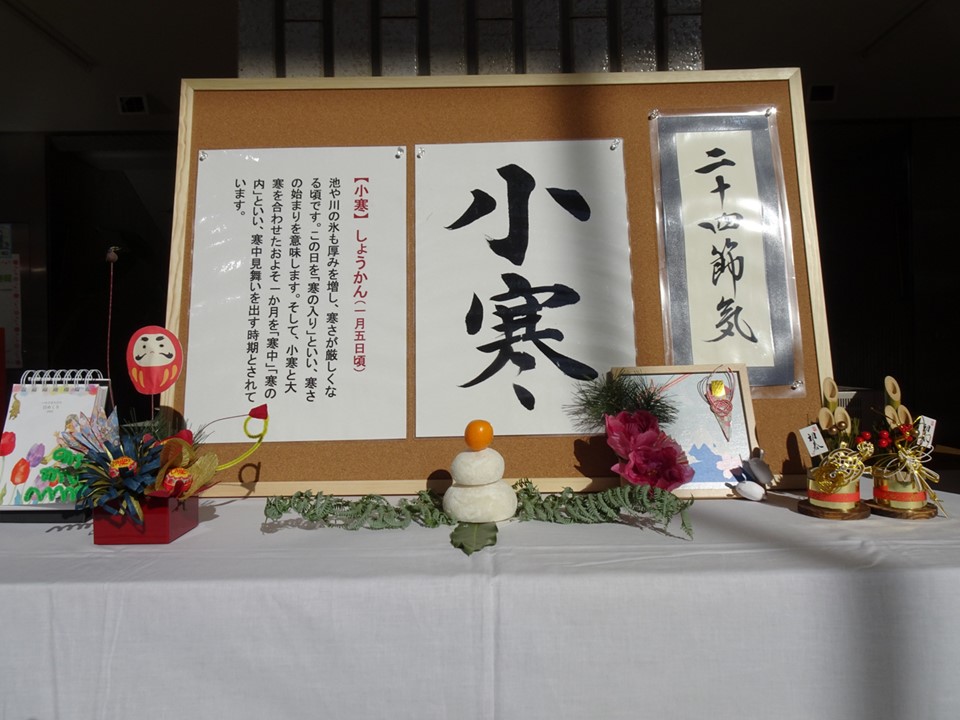 二十四節気
小寒
【小寒】 しょうかん(一月五日頃)
池や川の氷も厚みを増し、寒さが厳しくな
る頃です。この日を「寒の入り」といい、寒さ
の始まりを意味します。そして、小寒と大
寒を合わせたおよそ一か月を「寒中」「寒の
内」といい、寒中見舞いを出す時期とされて
います。